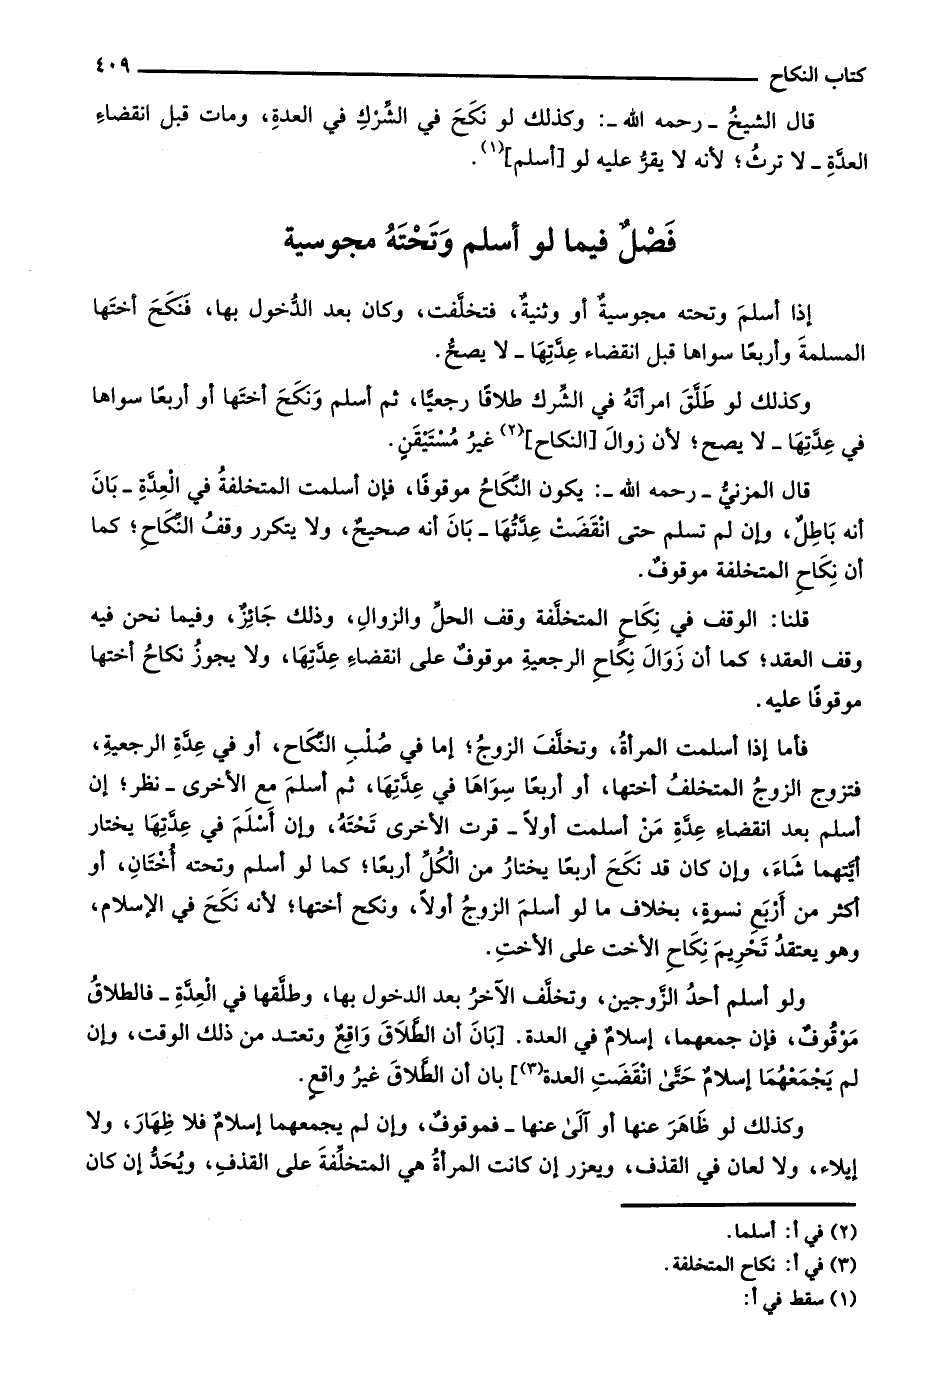 كتاب النكاح ٤٠٩
قال الشيخُ ـ رحمه الله ـ: وكذلك لو نَكَحَ في الشِّرْكِ في العدةِ، ومات قبل انقضاءِ
العدَّةِ ـ لا ترثُ؛ لأنه لا يقرُّ عليه لو [أسلم](١).
فَصْلٌ فيما لو أسلم وَتَحْتَهُ مجوسية
إذا أسلمَ وتحته مجوسيةٌ أو وثنيةٌ، فتخلَّفت، وكان بعد الدُّخول بها، فَنَكَحَ أختَها
المسلمةَ وأربعًا سواها قبل انقضاء عِدَّتِهَا ـ لا يصحُّ.
وكذلك لو طَلَّقَ امرأتَهُ في الشِّرك طلاقًا رجعيًّا، ثم أسلم وَنَكَحَ أختَها أو أربعًا سواها
في عِدَّتِهَا ـ لا يصح؛ لأن زوالَ [النكاح](٢) غيرُ مُسْتَيْقَنٍ.
قال المزنيُّ ـ رحمه الله ـ: يكون النَّكَاحُ موقوفًا، فإن أسلمت المتخلفةُ في الْعِدَّةِ ـ بَانَ
أنه بَاطِلٌ، وإن لم تسلم حتى انْقَضَتْ عِدَّتُهَا ـ بَانَ أنه صحيحٌ، ولا يتكرر وقفُ النِّكَاحِ؛ كما
أن نِكَاحِ المتخلفة موقوفٌ.
قلنا: الوقف في نِكَاحٍ المتخلَّفة وقف الحلِّ والزوالِ، وذلك جَائِزٌ، وفيما نحن فيه
وقف العقد؛ كما أن زَوَالَ نِكَاحِ الرجعيةِ موقوفٌ على انقضاءِ عِدَّتِهَا، ولا يجوزُ نكاحُ أختها
موقوفًا عليه.
فأما إذا أسلمت المرأةُ، وتخلَّفَ الزوجُ؛ إما في صُلْبِ النَّكَاح، أو في عِدَّةِ الرجعيةِ،
فتزوج الزوجُ المتخلفُ أختها، أو أربعًا سِوَاهَا في عِدَّتِهَا، ثم أسلمَ مع الأخرى ـ نظر؛ إن
أسلم بعد انقضاءِ عِدَّةِ مَنْ أسلمت أولاً ـ قرت الأخرى تَحْتَهُ، وإن أَسْلَمَ في عِدَّتِهَا يختار
أيَّتهما شَاءَ، وإن كان قد نَكَحَ أربعًا يختارُ من الْكُلِّ أربعًا؛ كما لو أسلم وتحته أُخْتَانِ، أو
أكثر من أَرْبَعِ نسوةٍ، بخلاف ما لو أسلمَ الزوجُ أولاً، ونكح أختها؛ لأنه نَكَحَ في الإسلام،
وهو يعتقدُ تَحْرِيمَ نِكَاحِ الأخت على الأختِ.
ولو أسلم أحدُ الزَّوجين، وتخلَّف الآخرُ بعد الدخول بها، وطلَّقها في الْعِدَّةِ ـ فالطلاقُ
مَوْقُوفٌ، فإن جمعهما، إسلامٌ في العدة. [بَانَ أن الطَّلَاقَ وَاقِعٌ وتعتـد من ذلك الوقت، وإن
لم يَجْمَعْهُمَا إسلامٌ حَتَّىٰ انْقَضَتِ العدة(٣)] بان أن الطَّلاقَ غيرُ واقعٍ.
وكذلك لو ظَاهَرَ عنها أو آلَىٰ عنها ـ فموقوفٌ، وإن لم يجمعهما إسلامٌ فلا ظِهَارَ، ولا
إيلاء، ولا لعان في القذف، ويعزر إن كانت المرأةُ هي المتخلِّفةَ على القذفِ، ويُحَدُّ إن كان
(٢) في أ: أسلما.
(٣) في أ: نكاح المتخلفة.
(١) سقط في أ: